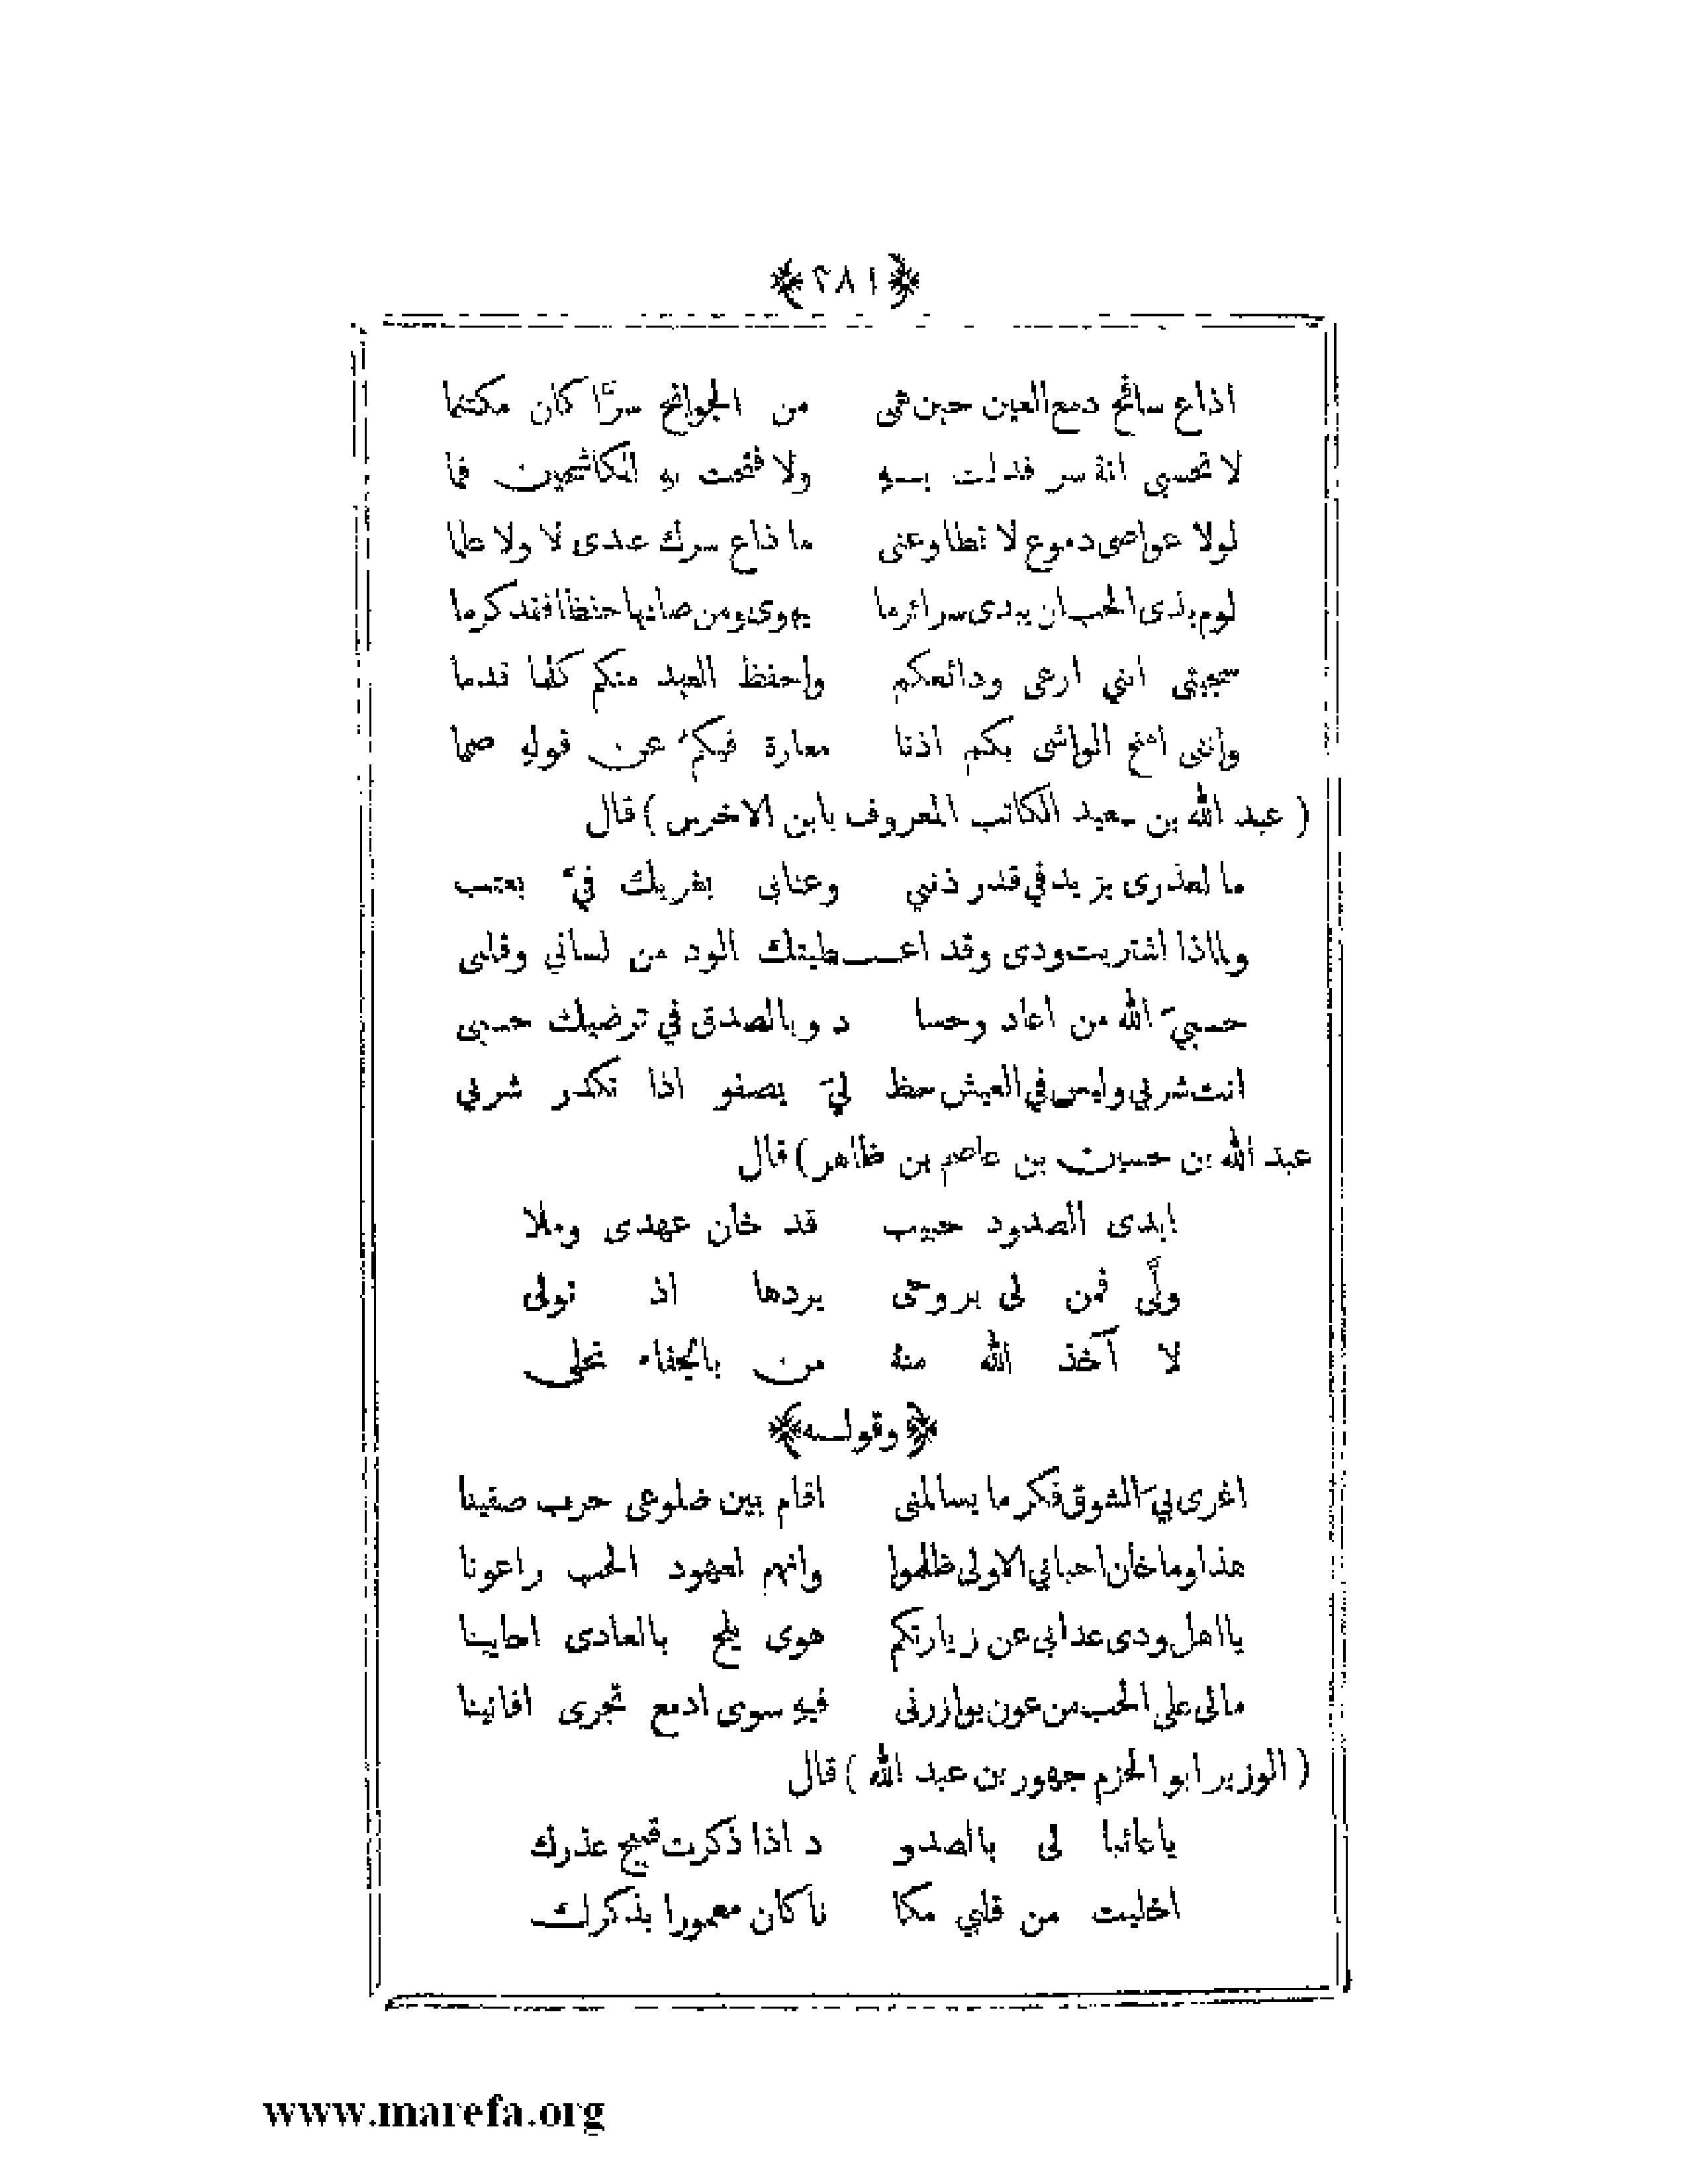 ﴿٢٨١﴾
اذاع سافح دمع العين حين همى من الجوانح سرًّا كان مكتتما
لا تحسبى انة سر فدلت بـه ولا فتحت به للكاشحين فما
لولا عواصى دموع لا تطاوعنى ما ذاع سرك عدى لا ولا علما
لوم بذى الحب ان يبدى سرائر ما يهوى ومن صانها حفظا فقد كرما
سجيتى اننى ارعى ودائعكم واحفظ العهد منكم كلما قدما
واننى امنح الواشى بكم اذنا معارة فيكم عن قوله صمما
( عبد الله بن سعيد الكاتب المعروف بابن الاخرس ) قال
ما لعذرى يزيد في قدر ذنبي وعنانى يغريك فيَّ بعتب
ولماذا اشتريت ودى وقد اعـطيتك الود من لساني وقلبى
حسبيَ الله من اعاد وحسا د وبالصدق في ترضيك حسبى
انت شربي وليس في العيش حظ ليَ يصفو اذا تكدر شربي
عبد الله بن حسين بن عاصم بن ظاهر) قال
ابدى الصدود حبيب قد خان عهدى وملا
ولَّى فمن لى بروحى يردها اذ تولى
لا آخذ الله منه من بالجفاء تحلى
﴿وقولـه﴾
اغرى بيَ الشوق فكر ما يسالمنى اقام بين ضلوعى حرب صفينا
هذا وما خان احبابي الاولى ظلموا وانهم لعهود الحب راعونا
يا اهل ودى عدانى عن زيارتكم هوى يلح بالعادى احايينا
مالى على الحب من عون يوازرنى فيه سوى ادمع تجرى افانينا
( الوزير ابو الحزم جهور بن عبد الله ) قال
يا عائبا لى بالصدو د اذا ذكرت قبيح عذرك
اخليت من قلبي مكا نا كان معمورا بذكرك
www.marefa.org